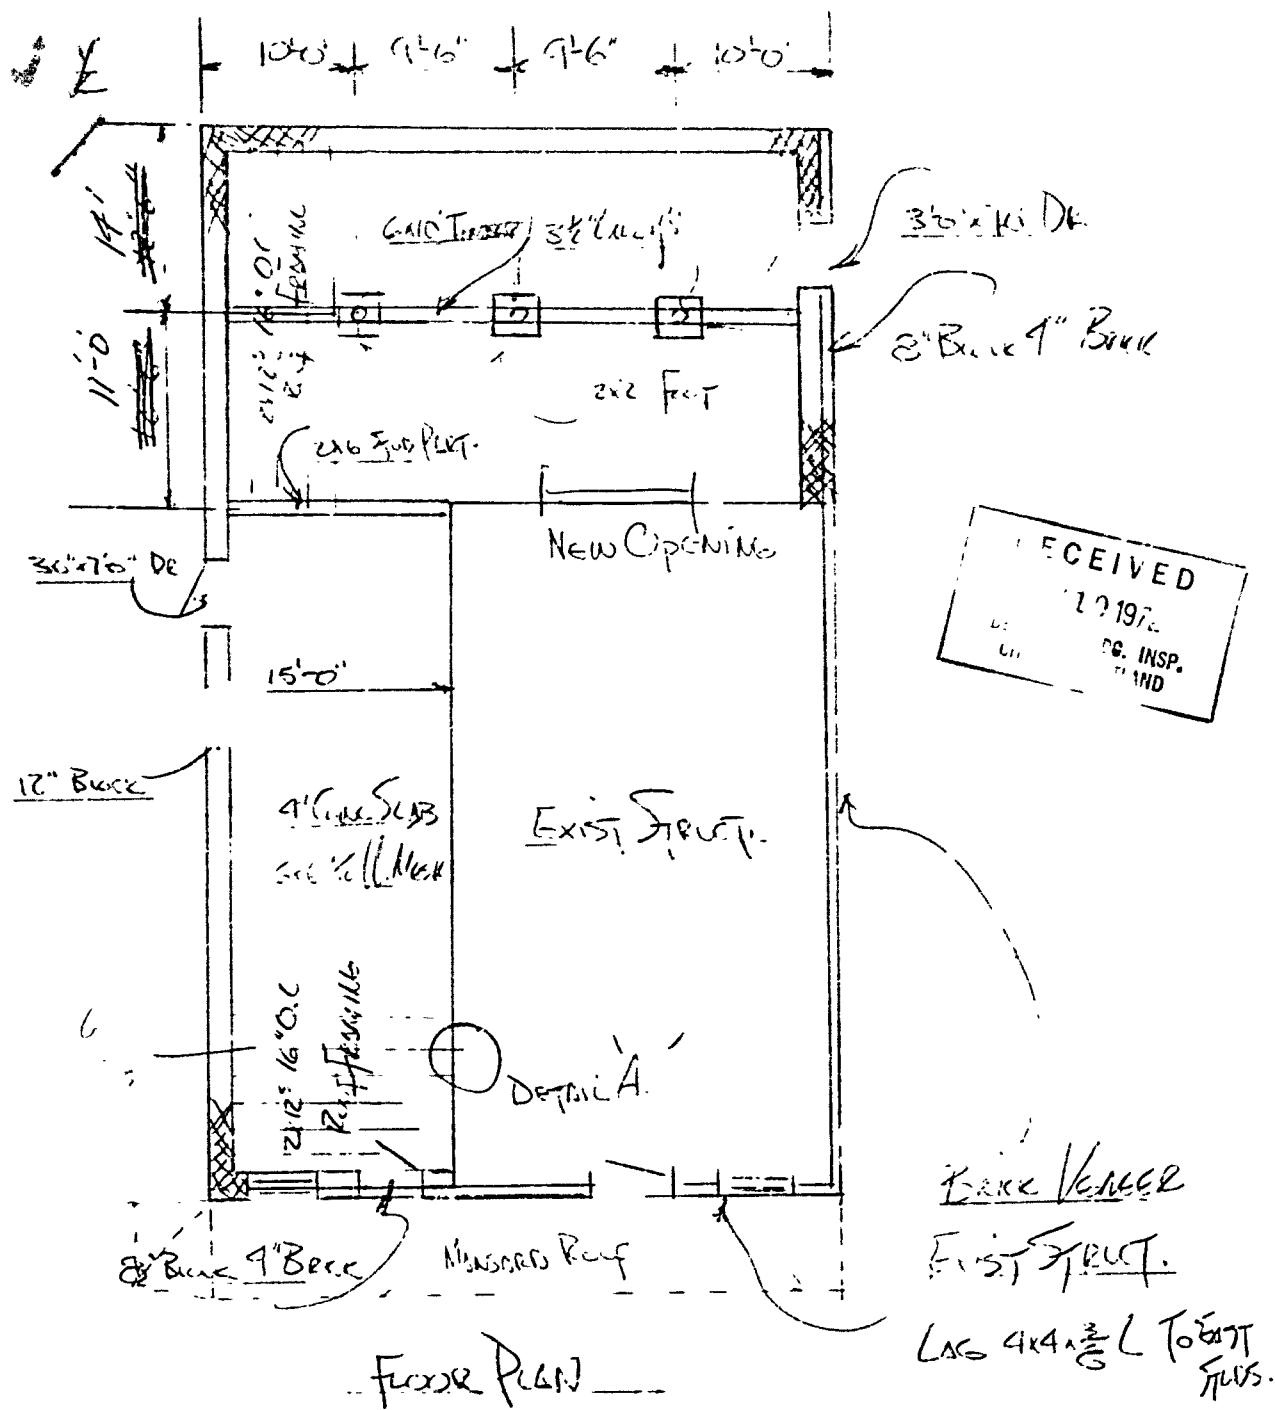 10'-0" 9'-6" 9'-6" 10'-0"
14'
11'-0"
6x10 Timber 3½" Lally's
16" O.C
Framing
2x12s
3'0" x Dr
8" Block 4" Brick
2x2 Foot
2x6 Stud Part.
New Opening
3'0" x 7'0" Dr
RECEIVED
1972
DG. INSP.
15'-0"
12" Block
4" Conc Slab
Mesh
Exist Struct.
2x12s 16" O.C
Roof Framing
Detail 'A'
8" Block 4" Brick
Mansard Roof
Brick Veneer
Exist Struct.
Lag 4x4x L To Exist
Studs.
Floor Plan